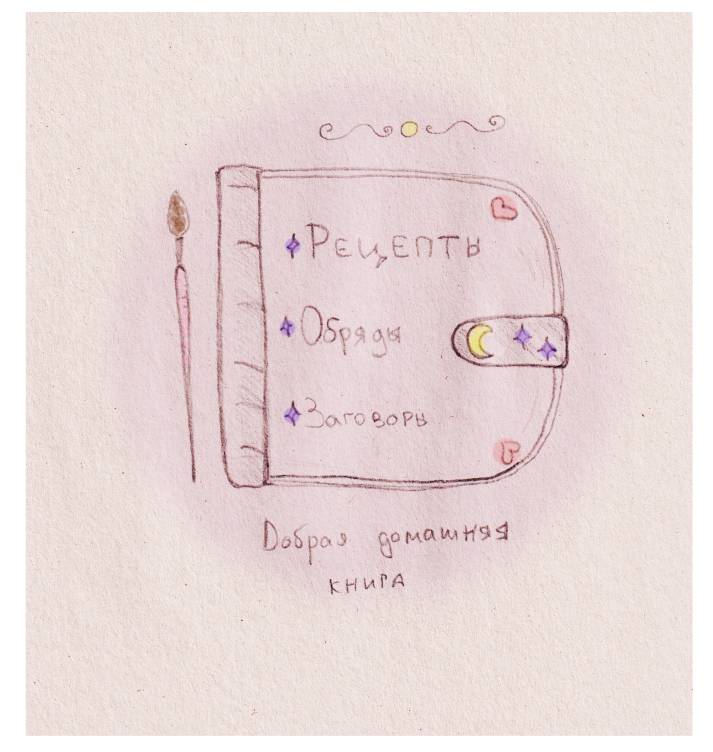 Рецепты
Обряды
Заговоры
Добрая домашняя
книга